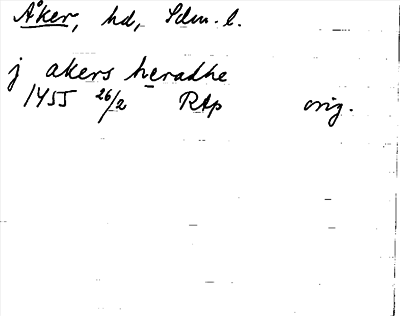 Åker, hd, Sdm. l.
j akers heradhe
1455 26/2 RAp orig.